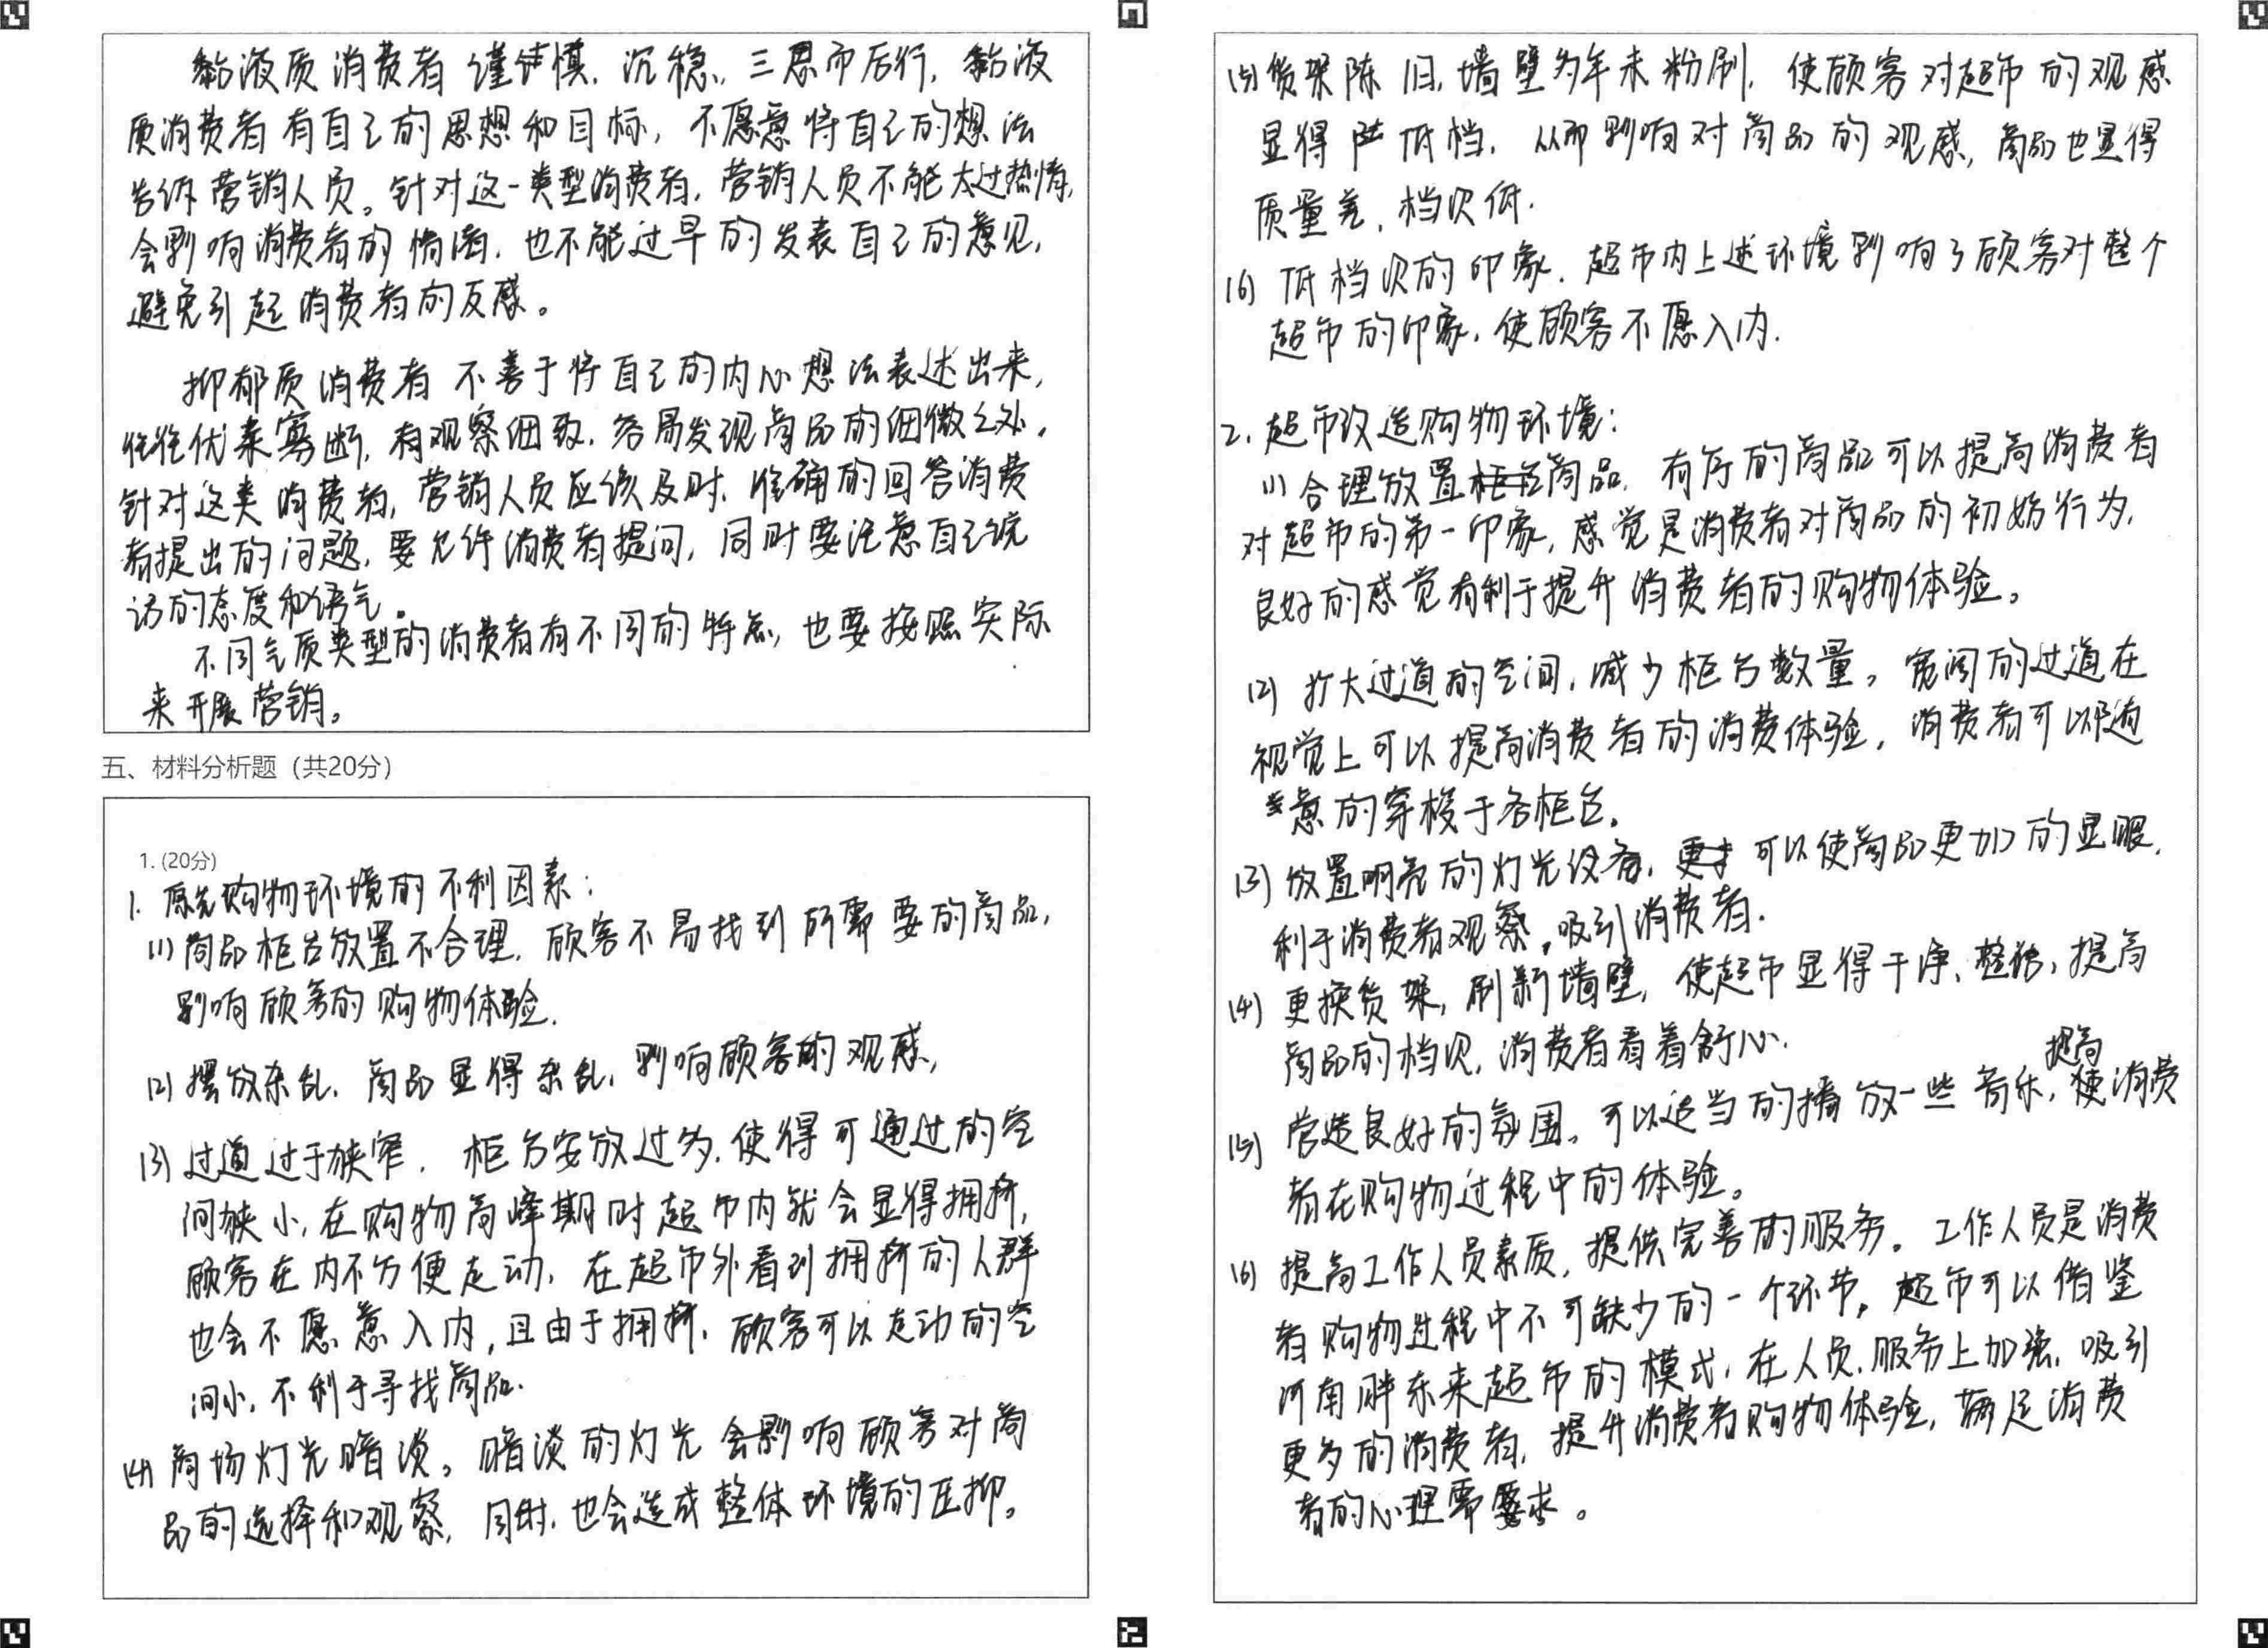 黏液质消费者谨慎、沉稳、三思而后行，黏液
质消费者有自己的思想和目标，不愿意将自己的想法
告诉营销人员。针对这一类型消费者，营销人员不能太过热情，
会影响消费者的情绪，也不能过早的发表自己的意见，
避免引起消费者的反感。
抑郁质消费者不善于将自己的内心想法表述出来，
往往优柔寡断，有观察细致，容易发现商品的细微之处。
针对这类消费者，营销人员应该及时、准确的回答消费
者提出的问题，要允许消费者提问，同时要注意自己说
话的态度和语气。
不同气质类型的消费者有不同的特点，也要按照实际
来开展营销。
五、材料分析题（共20分）
1. (20分)
1. 原先购物环境的不利因素：
(1) 商品柜台放置不合理，顾客不易找到所需要的商品，
影响顾客的购物体验.
(2) 摆放杂乱，商品显得杂乱，影响顾客的观感，
(3) 过道过于狭窄，柜台安放过多，使得可通过的空
间狭小，在购物高峰期时超市内就会显得拥挤，
顾客在内不方便走动，在超市外看到拥挤的人群
也会不愿意入内，且由于拥挤，顾客可以走动的空
间小，不利于寻找商品.
(4) 商场灯光暗淡。暗淡的灯光会影响顾客对商
品的选择和观察，同时，也会造成整体环境的压抑。
(5) 货架陈旧，墙壁多年未粉刷，使顾客对超市的观感
显得低档，从而影响对商品的观感，商品也显得
质量差，档次低.
(6) 低档次的印象，超市内上述环境影响了顾客对整个
超市的印象，使顾客不愿入内.
2. 超市改造购物环境：
(1) 合理放置商品，有序的商品可以提高消费者
对超市的第一印象，感觉是消费者对商品的初始行为，
良好的感觉有利于提升消费者的购物体验。
(2) 扩大过道的空间，减少柜台数量。宽阔的过道在
视觉上可以提高消费者的消费体验，消费者可以随
意的穿梭于各柜台。
(3) 放置明亮的灯光设备，可以使商品更加的显眼，
利于消费者观察，吸引消费者.
(4) 更换货架，刷新墙壁，使超市显得干净、整洁，提高
商品的档次，消费者看着舒心.
(5) 营造良好的氛围。可以适当的播放一些音乐，提高消费
者在购物过程中的体验。
(6) 提高工作人员素质，提供完善的服务。工作人员是消费
者购物过程中不可缺少的一个环节，超市可以借鉴
河南胖东来超市的模式，在人员、服务上加强，吸引
更多的消费者，提升消费者购物体验，满足消费
者的心理需求。